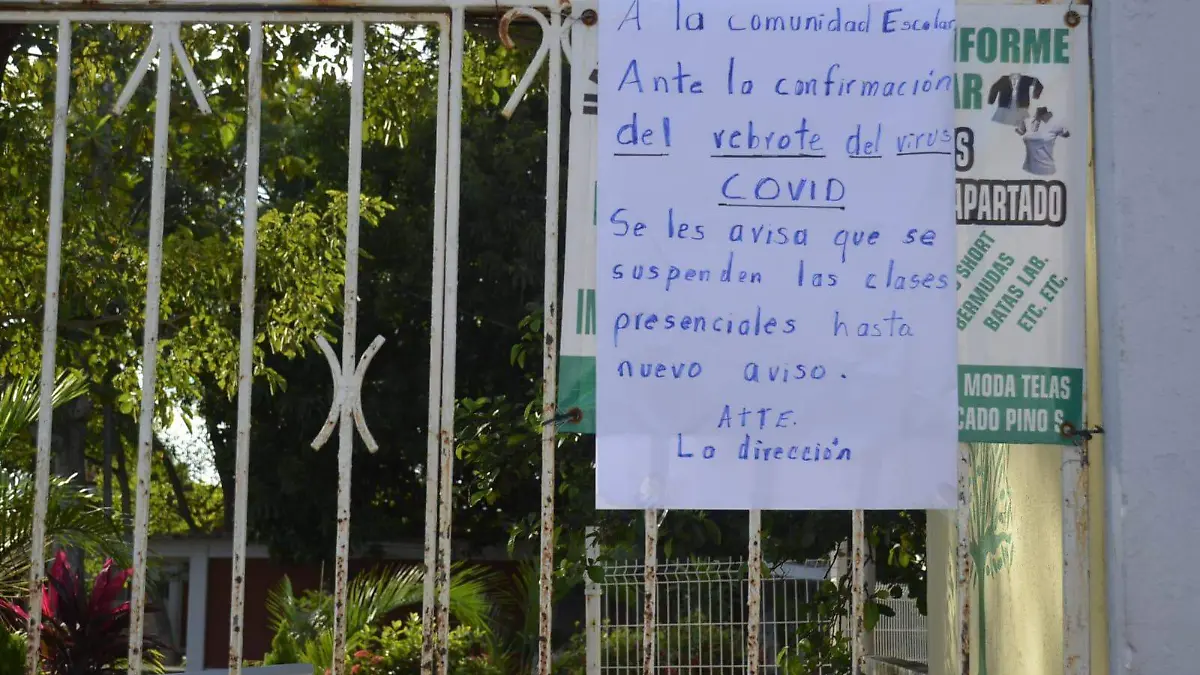 A la comunidad Escolar
Ante la confirmación
del rebrote del virus
COVID
Se les avisa que se
suspenden las clases
presenciales hasta
nuevo aviso.
ATTE.
La dirección
IFORME
AR
S
APARTADO
SHORT
BERMUDAS
BATAS LAB.
ETC. ETC.
MODA TELAS
CADO PINO S
IN